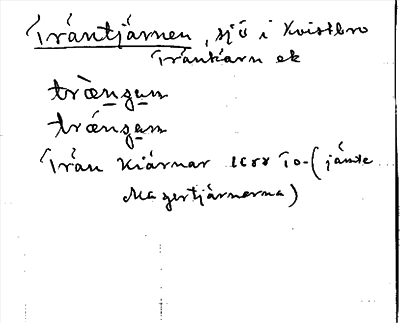 Tråntjärnen, sjö i Kvistbro
Tränkärn ek
træ̀ngan
trǻngan
Trån Kiärnar 1688 To-(jämte
Magertjärnarna)